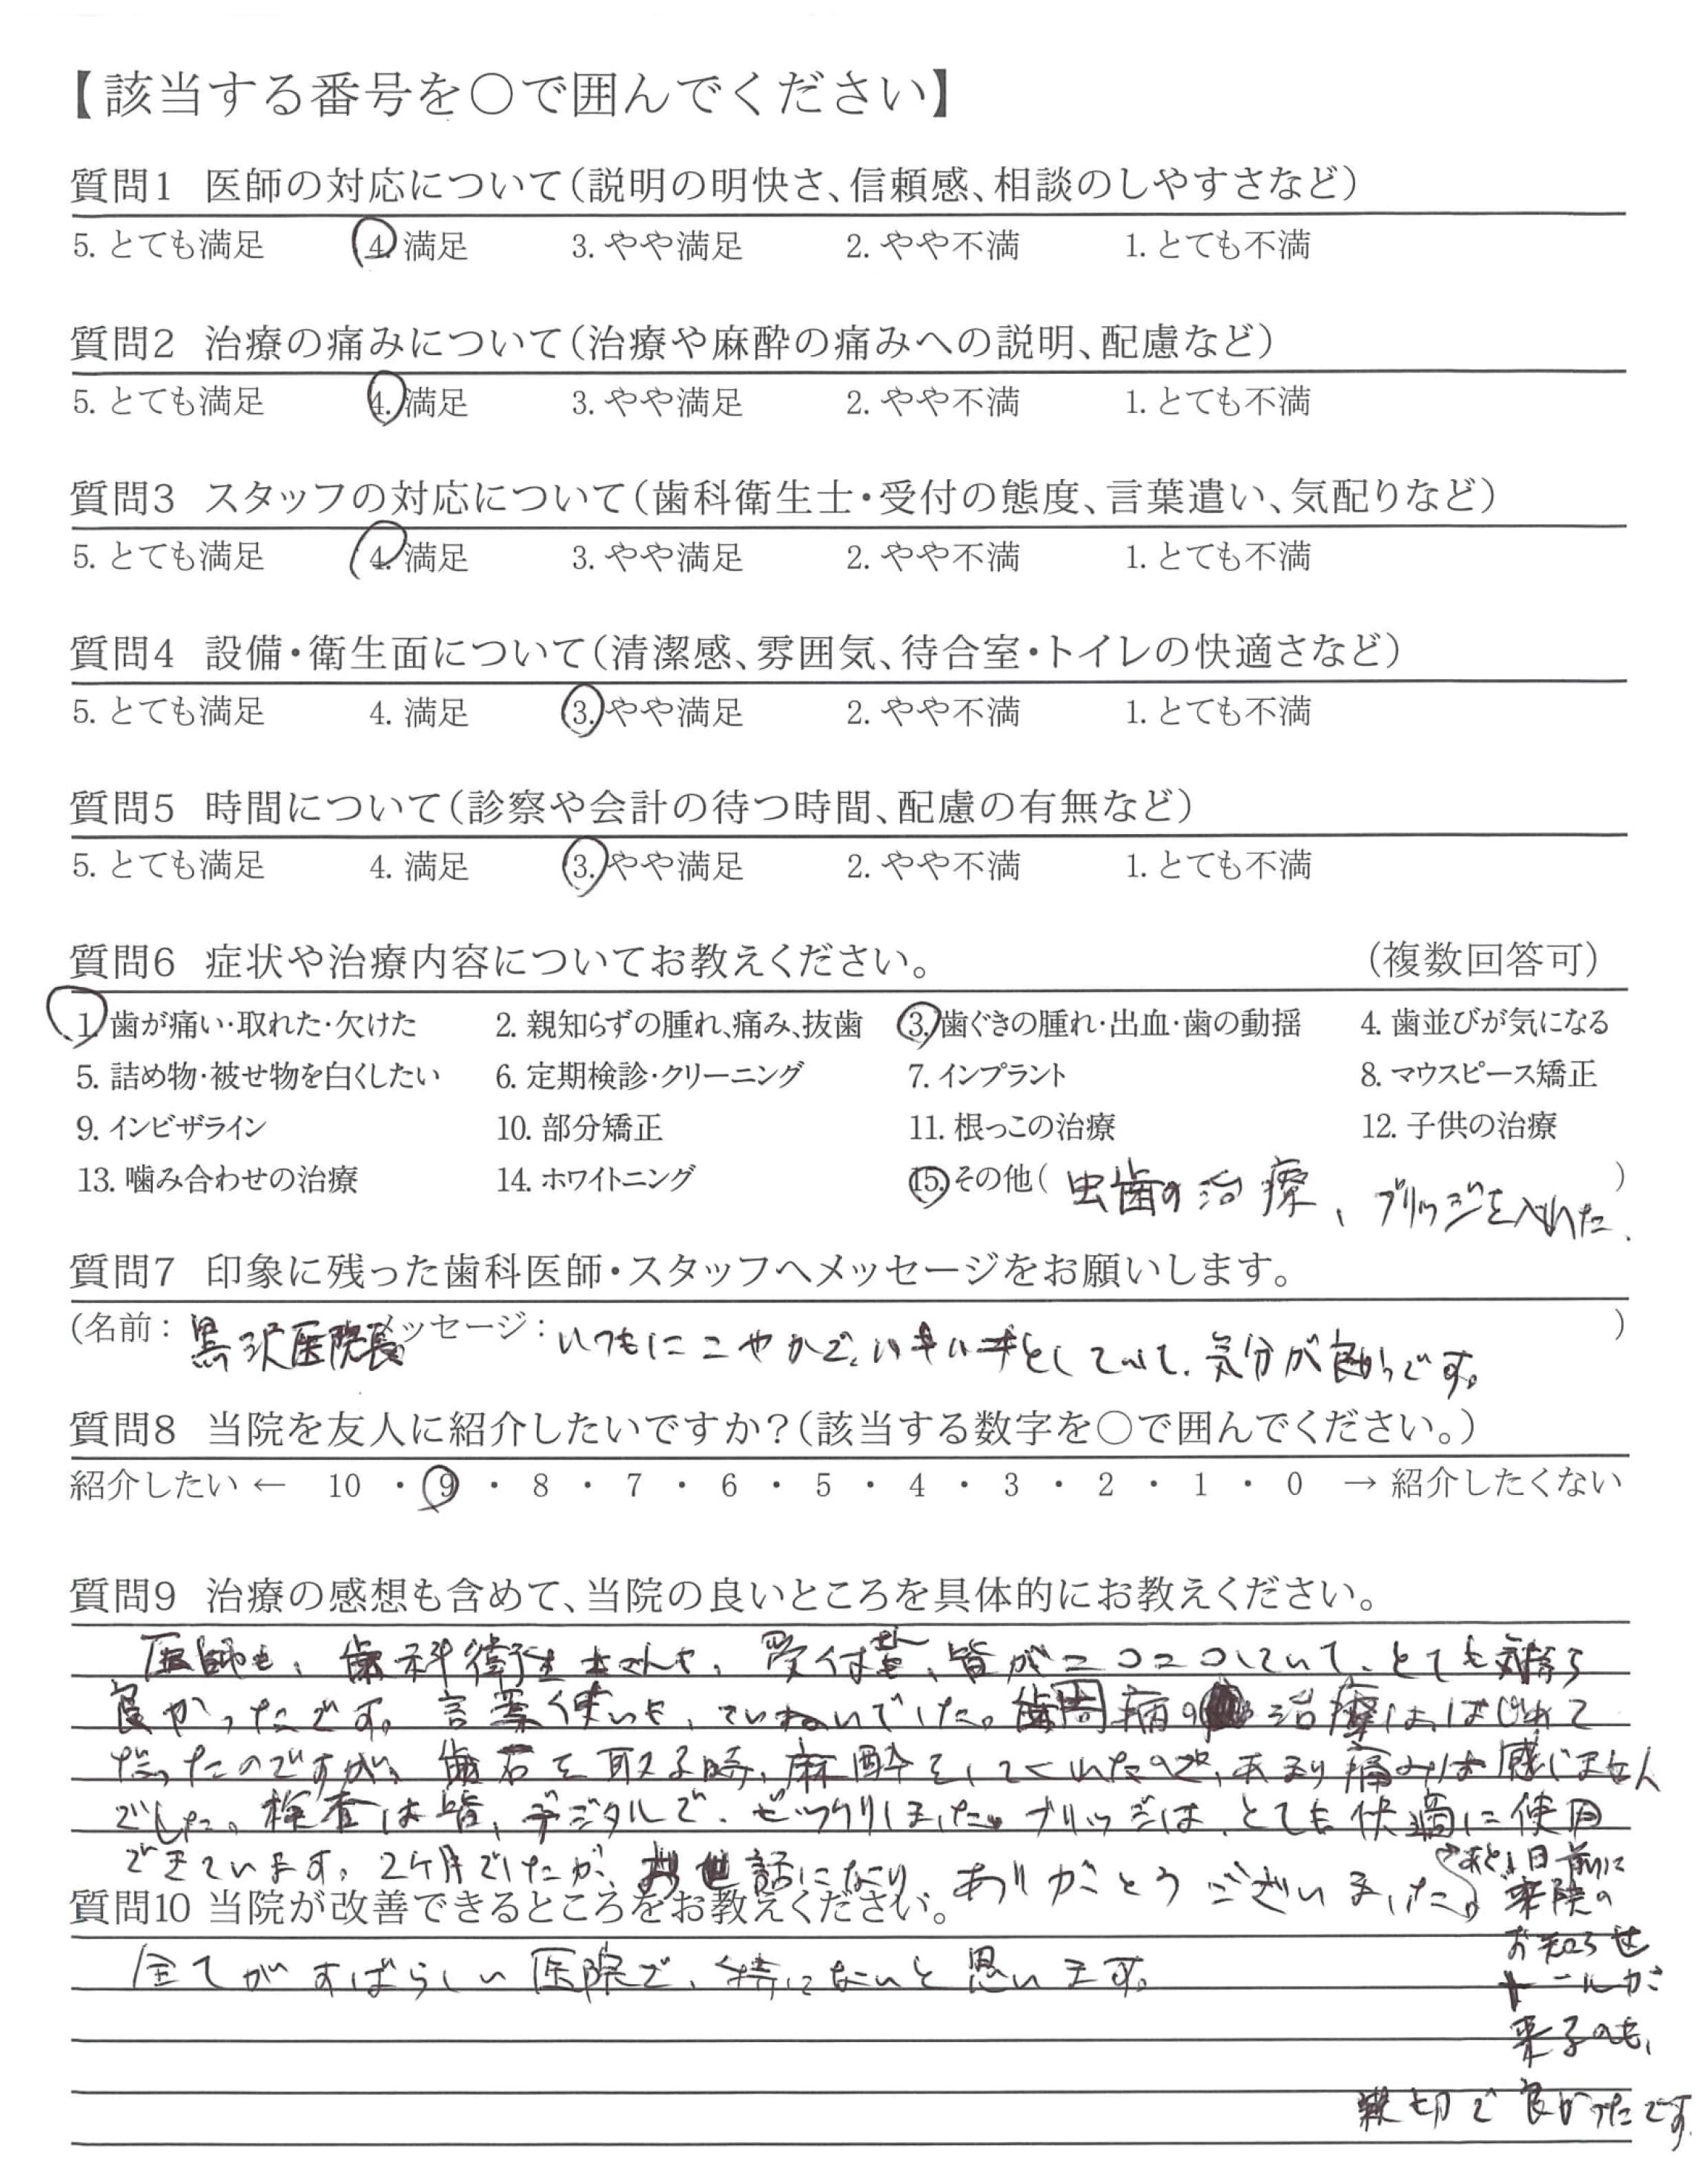 【該当する番号を○で囲んでください】
質問1 医師の対応について(説明の明快さ、信頼感、相談のしやすさなど)
5. とても満足 4. 満足 3. やや満足 2. やや不満 1. とても不満
質問2 治療の痛みについて(治療や麻酔の痛みへの説明、配慮など)
5. とても満足 4. 満足 3. やや満足 2. やや不満 1. とても不満
質問3 スタッフの対応について(歯科衛生士・受付の態度、言葉遣い、気配りなど)
5. とても満足 4. 満足 3. やや満足 2. やや不満 1. とても不満
質問4 設備・衛生面について(清潔感、雰囲気、待合室・トイレの快適さなど)
5. とても満足 4. 満足 3. やや満足 2. やや不満 1. とても不満
質問5 時間について(診察や会計の待つ時間、配慮の有無など)
5. とても満足 4. 満足 3. やや満足 2. やや不満 1. とても不満
質問6 症状や治療内容についてお教えください。 (複数回答可)
1. 歯が痛い・取れた・欠けた 2. 親知らずの腫れ、痛み、抜歯 3. 歯ぐきの腫れ・出血・歯の動揺 4. 歯並びが気になる
5. 詰め物・被せ物を白くしたい 6. 定期検診・クリーニング 7. インプラント 8. マウスピース矯正
9. インビザライン 10. 部分矯正 11. 根っこの治療 12. 子供の治療
13. 噛み合わせの治療 14. ホワイトニング 15. その他( 虫歯の治療、ブリッジを入れた、 )
質問7 印象に残った歯科医師・スタッフへメッセージをお願いします。
(名前: 黒沢医院長 メッセージ: いつもにこやかで、いきいきとしていて、気分が良かっです。 )
質問8 当院を友人に紹介したいですか?(該当する数字を○で囲んでください。)
紹介したい ← 10 ・ 9 ・ 8 ・ 7 ・ 6 ・ 5 ・ 4 ・ 3 ・ 2 ・ 1 ・ 0 → 紹介したくない
質問9 治療の感想も含めて、当院の良いところを具体的にお教えください。
医師も、歯科衛生士さんも、受付も、皆がニコニコしていて、とても気持ち
良かったです。言葉使いも、ていねいでした。歯周病の治療は、はじめて
だったのですが、歯石を取る時、麻酔をしてくれたので、あまり痛みは感じません
でした。検査は皆、デジタルで、ビックリしました。ブリッジは、とても快適に使用
できています。2ケ月でしたが、お世話になり、ありがとうございました。
あと、1日前に
来院の
お知らせ
メールが
来るのも、
親切で良かったです。
質問10 当院が改善できるところをお教えください。
全てがすばらしい医院で、特にないと思います。